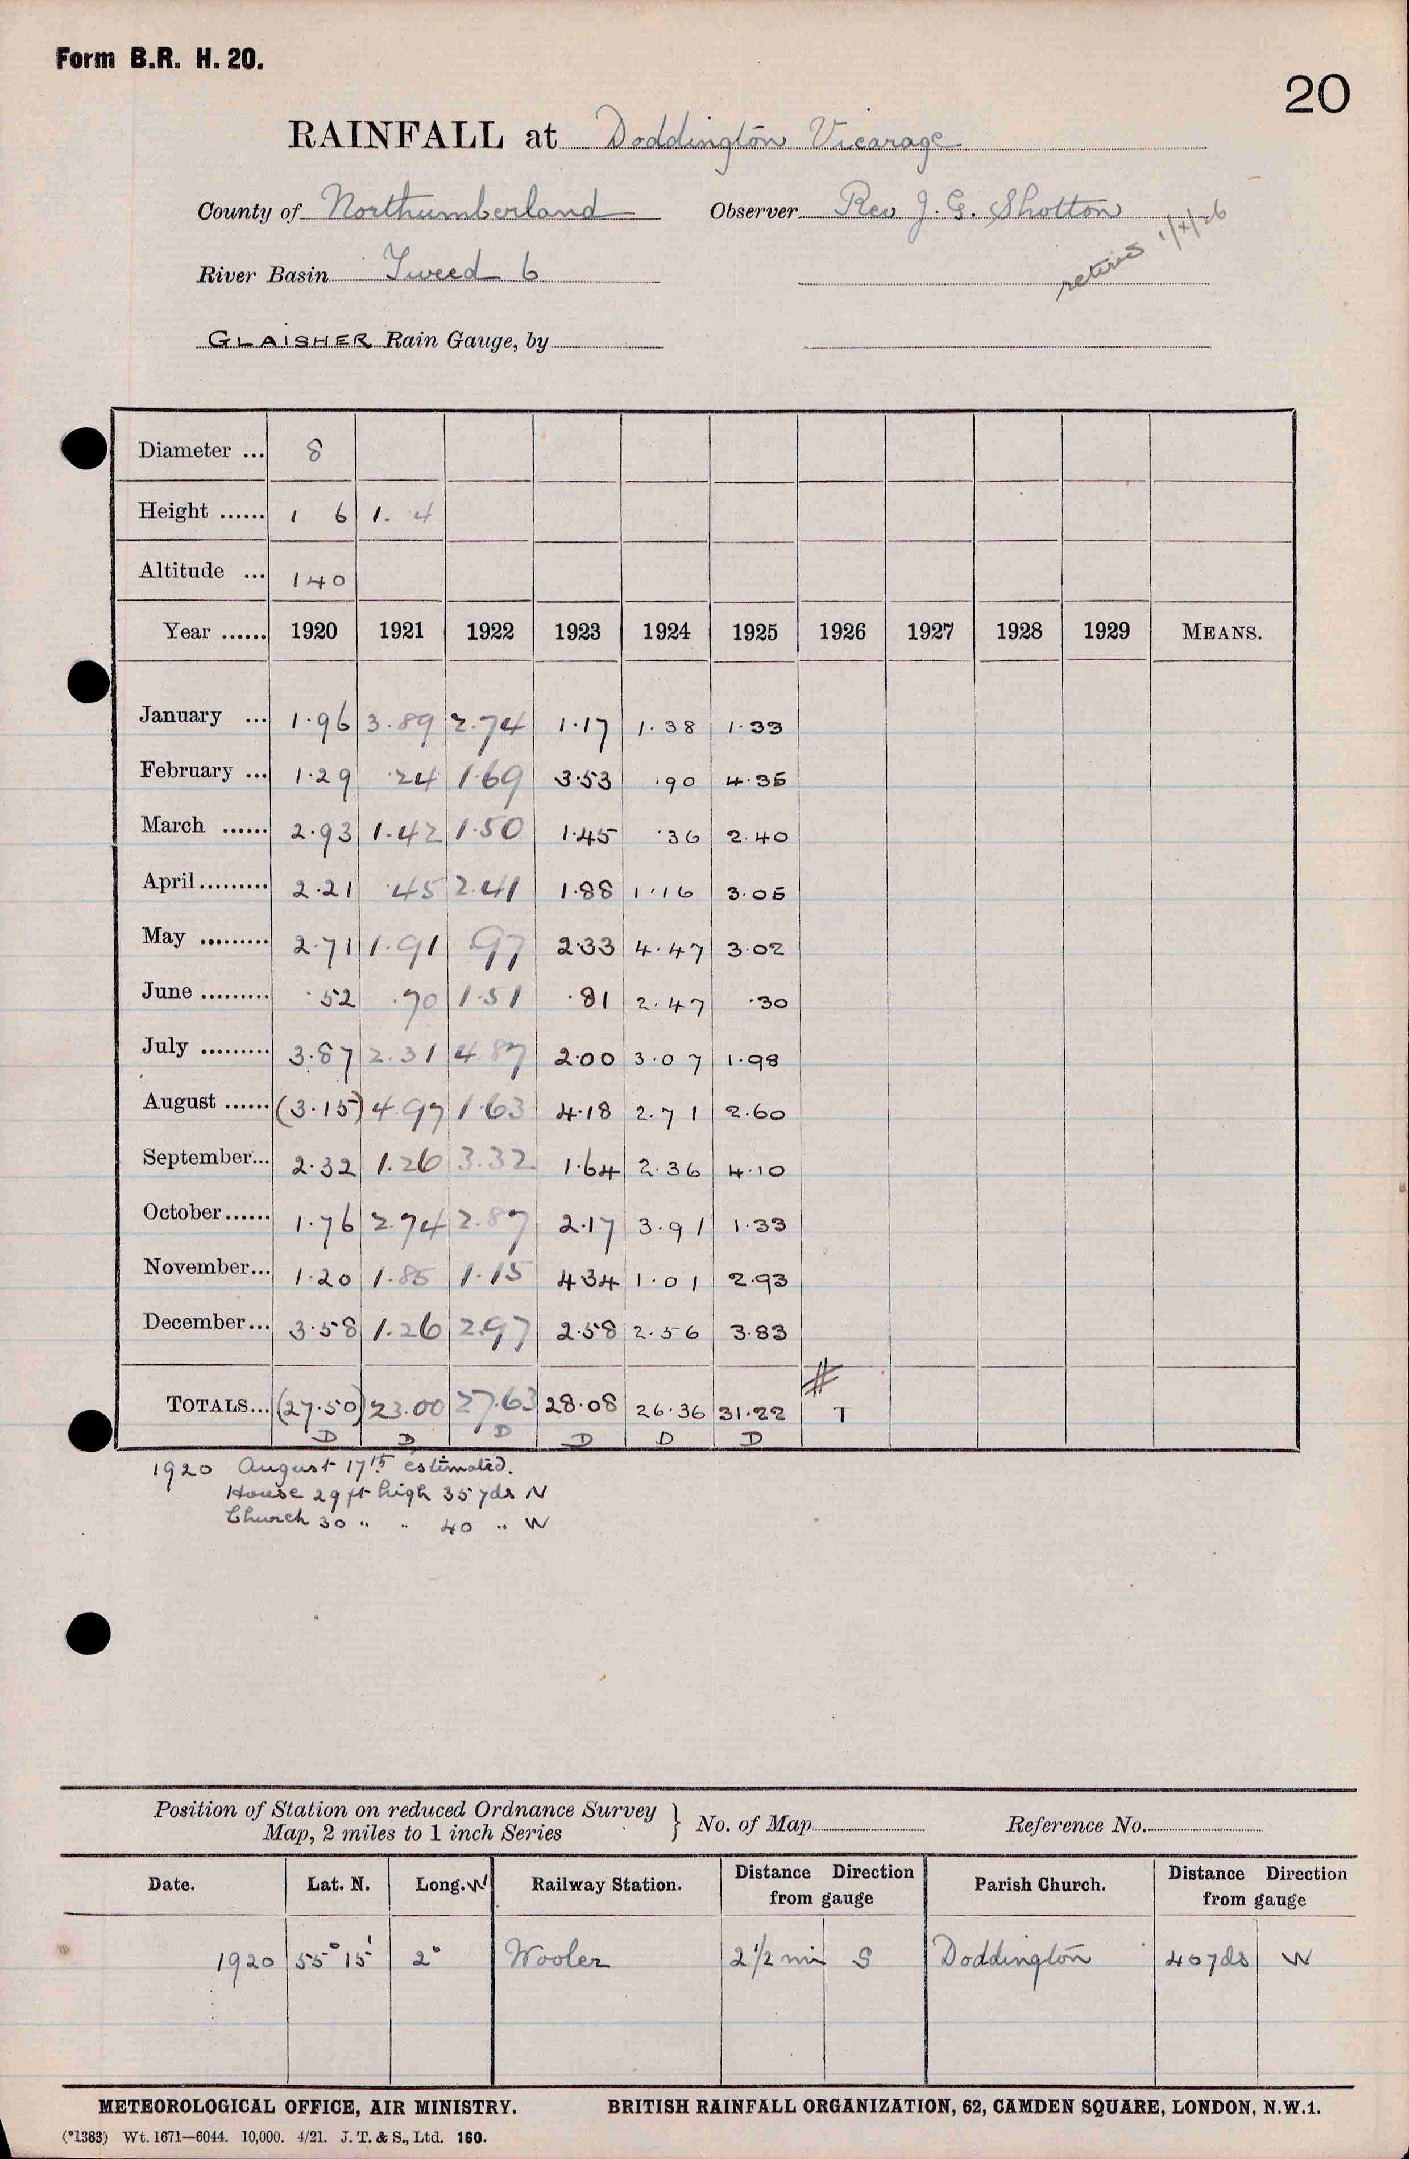 Form B.R. H. 20.
20
RAINFALL at Doddington Vicarage
County of Northumberland Observer Rev J. G. Shotton
River Basin Tweed 6
GLAISHER Rain Gauge, by
Diameter ... 8
Height ...... 1 6 1. 4
Altitude ... 140
Year ...... 1920 1921 1922 1923 1924 1925 1926 1927 1928 1929 MEANS.
January ... 1.96 3.89 2.74 1.17 1.38 1.33
February ... 1.29 .24 1.69 3.53 .90 4.35
March ...... 2.93 1.42 1.50 1.45 .36 2.40
April ......... 2.21 .45 2.41 1.88 1.16 3.05
May ......... 2.71 1.91 .97 2.33 4.47 3.02
June ......... .52 .70 1.51 .81 2.47 .30
July ......... 3.87 2.31 4.87 2.00 3.07 1.98
August ...... (3.15) 4.97 1.63 4.18 2.71 2.60
September... 2.32 1.26 3.32 1.64 2.36 4.10
October...... 1.76 2.74 2.87 2.17 3.91 1.33
November... 1.20 1.85 1.15 4.34 1.01 2.93
December... 3.58 1.26 2.97 2.58 2.56 3.83
#
TOTALS... (27.50) 23.00 27.63 28.08 26.36 31.22 T
D D D D D D
1920 August 17th estimated.
House 29 ft high 35 yds N
Church 30 " " 40 " W
Position of Station on reduced Ordnance Survey
Map, 2 miles to 1 inch Series } No. of Map Reference No.
Date. Lat. N. Long. W Railway Station. Distance Direction from gauge Parish Church. Distance Direction from gauge
1920 55° 15' 2° Wooler 2 1/2 mi S Doddington 40 yds W
METEOROLOGICAL OFFICE, AIR MINISTRY. BRITISH RAINFALL ORGANIZATION, 62, CAMDEN SQUARE, LONDON, N.W.1.
(*1383) Wt. 1671—6044. 10,000. 4/21. J. T. & S., Ltd. 160.